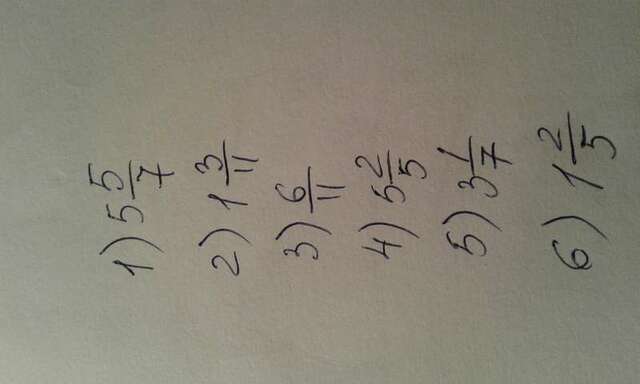 1) 5 5/7
2) 1 3/11
3) 6/11
4) 5 2/5
5) 3 1/7
6) 1 2/5